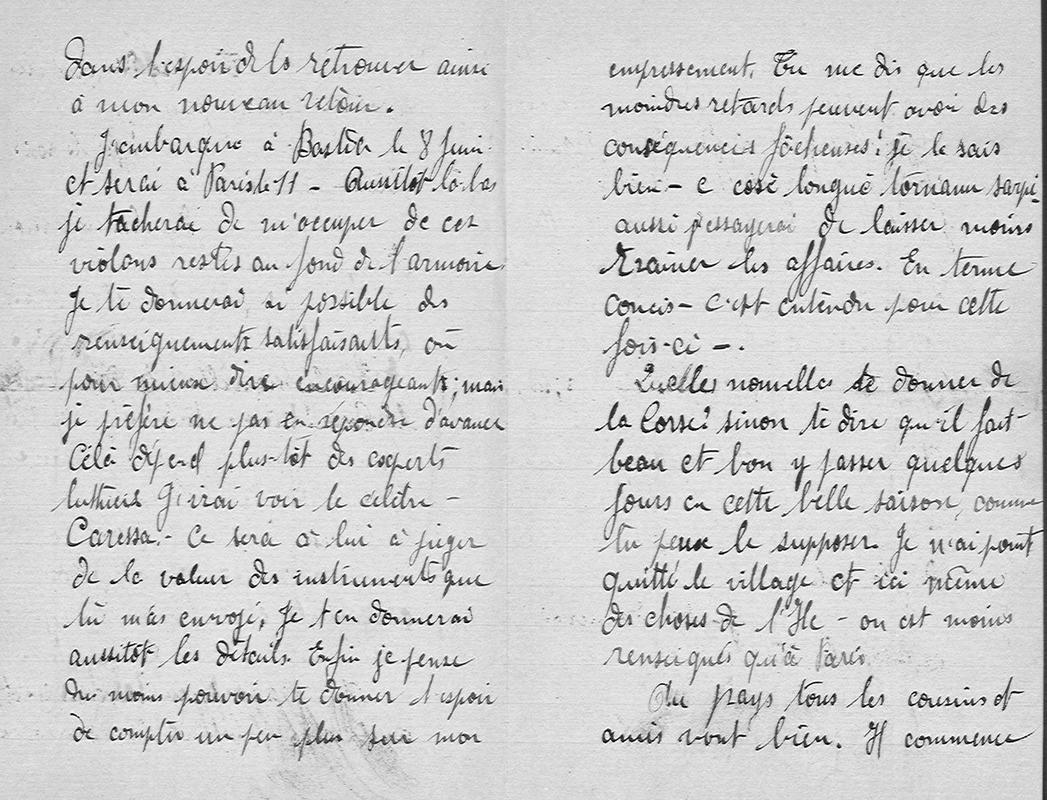 dans l'espoir de la retrouver ainsi
à mon nouveau retour.
J'embarque à Bastia le 8 Juin
et serai à Paris le 11 - Aussitôt là-bas
je tacherai de m'occuper de ces
violons restés au fond de l'armoire
Je te donnerai si possible des
renseignements satisfaisants, ou
pour mieux dire encourageants; mais
je préfère ne pas en répondre d'avance
Cela dépend plus-tôt des experts
luthiers J'irai voir le célèbre -
Caressa. - Ce sera à lui à juger
de la valeur des instruments que
tu m'as envoyé, Je t'en donnerai
aussitôt les détails. Enfin je pense
du moins pouvoir te donner l'espoir
de compter un peu plus sur mon
empressement. Tu me dis que les
moindres retards peuvent avoir des
conséquences fâcheuses! je le sais
bien - e cose longue tornanu sarpi -
aussi j'essayerai de laisser moins
trainer les affaires. En terme
concis - c'est entendu pour cette
fois-ci - .
Quelles nouvelles te donner de
la Corse? sinon te dire qu'il fait
beau et bon y passer quelques
jours en cette belle saison, comme
tu peux le supposer. Je n'ai point
quitté le village et ici même
des choses de l'Ile - on est moins
renseignés qu'à Paris.
Au pays tous les cousins et
amis vont bien. Il commence